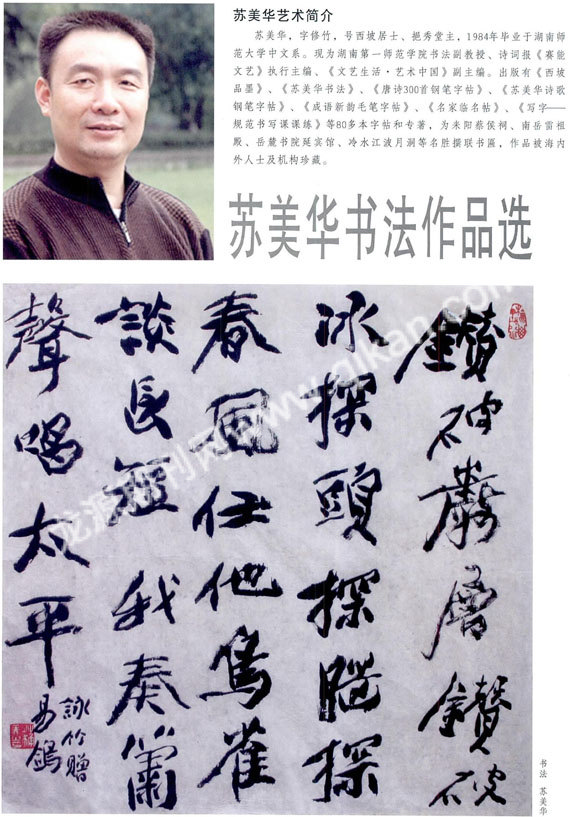 苏美华艺术简介
苏美华，字修竹，号西坡居士、挹秀堂主，1984年毕业于湖南师
范大学中文系。现为湖南第一师范学院书法副教授、诗词报《赛能
文艺》执行主编、《文艺生活·艺术中国》副主编。出版有《西坡
品墨》、《苏美华书法》、《唐诗300首钢笔字帖》、《苏美华诗歌
钢笔字帖》、《成语新韵毛笔字帖》、《名家临名帖》、《写字——
规范书写课课练》等80多本字帖和专著，为耒阳蔡侯祠、南岳雷祖
殿、岳麓书院延宾馆、冷水江波月洞等名胜撰联书匾，作品被海内
外人士及机构珍藏。
苏美华书法作品选
鑽破嚴層鑽破
冰探頭探腦探
春風任他鳥雀
談長短我奏簫
聲喝太平
詠竹贈
易鴿
书法 苏美华
龙源期刊网 www.qikan.com